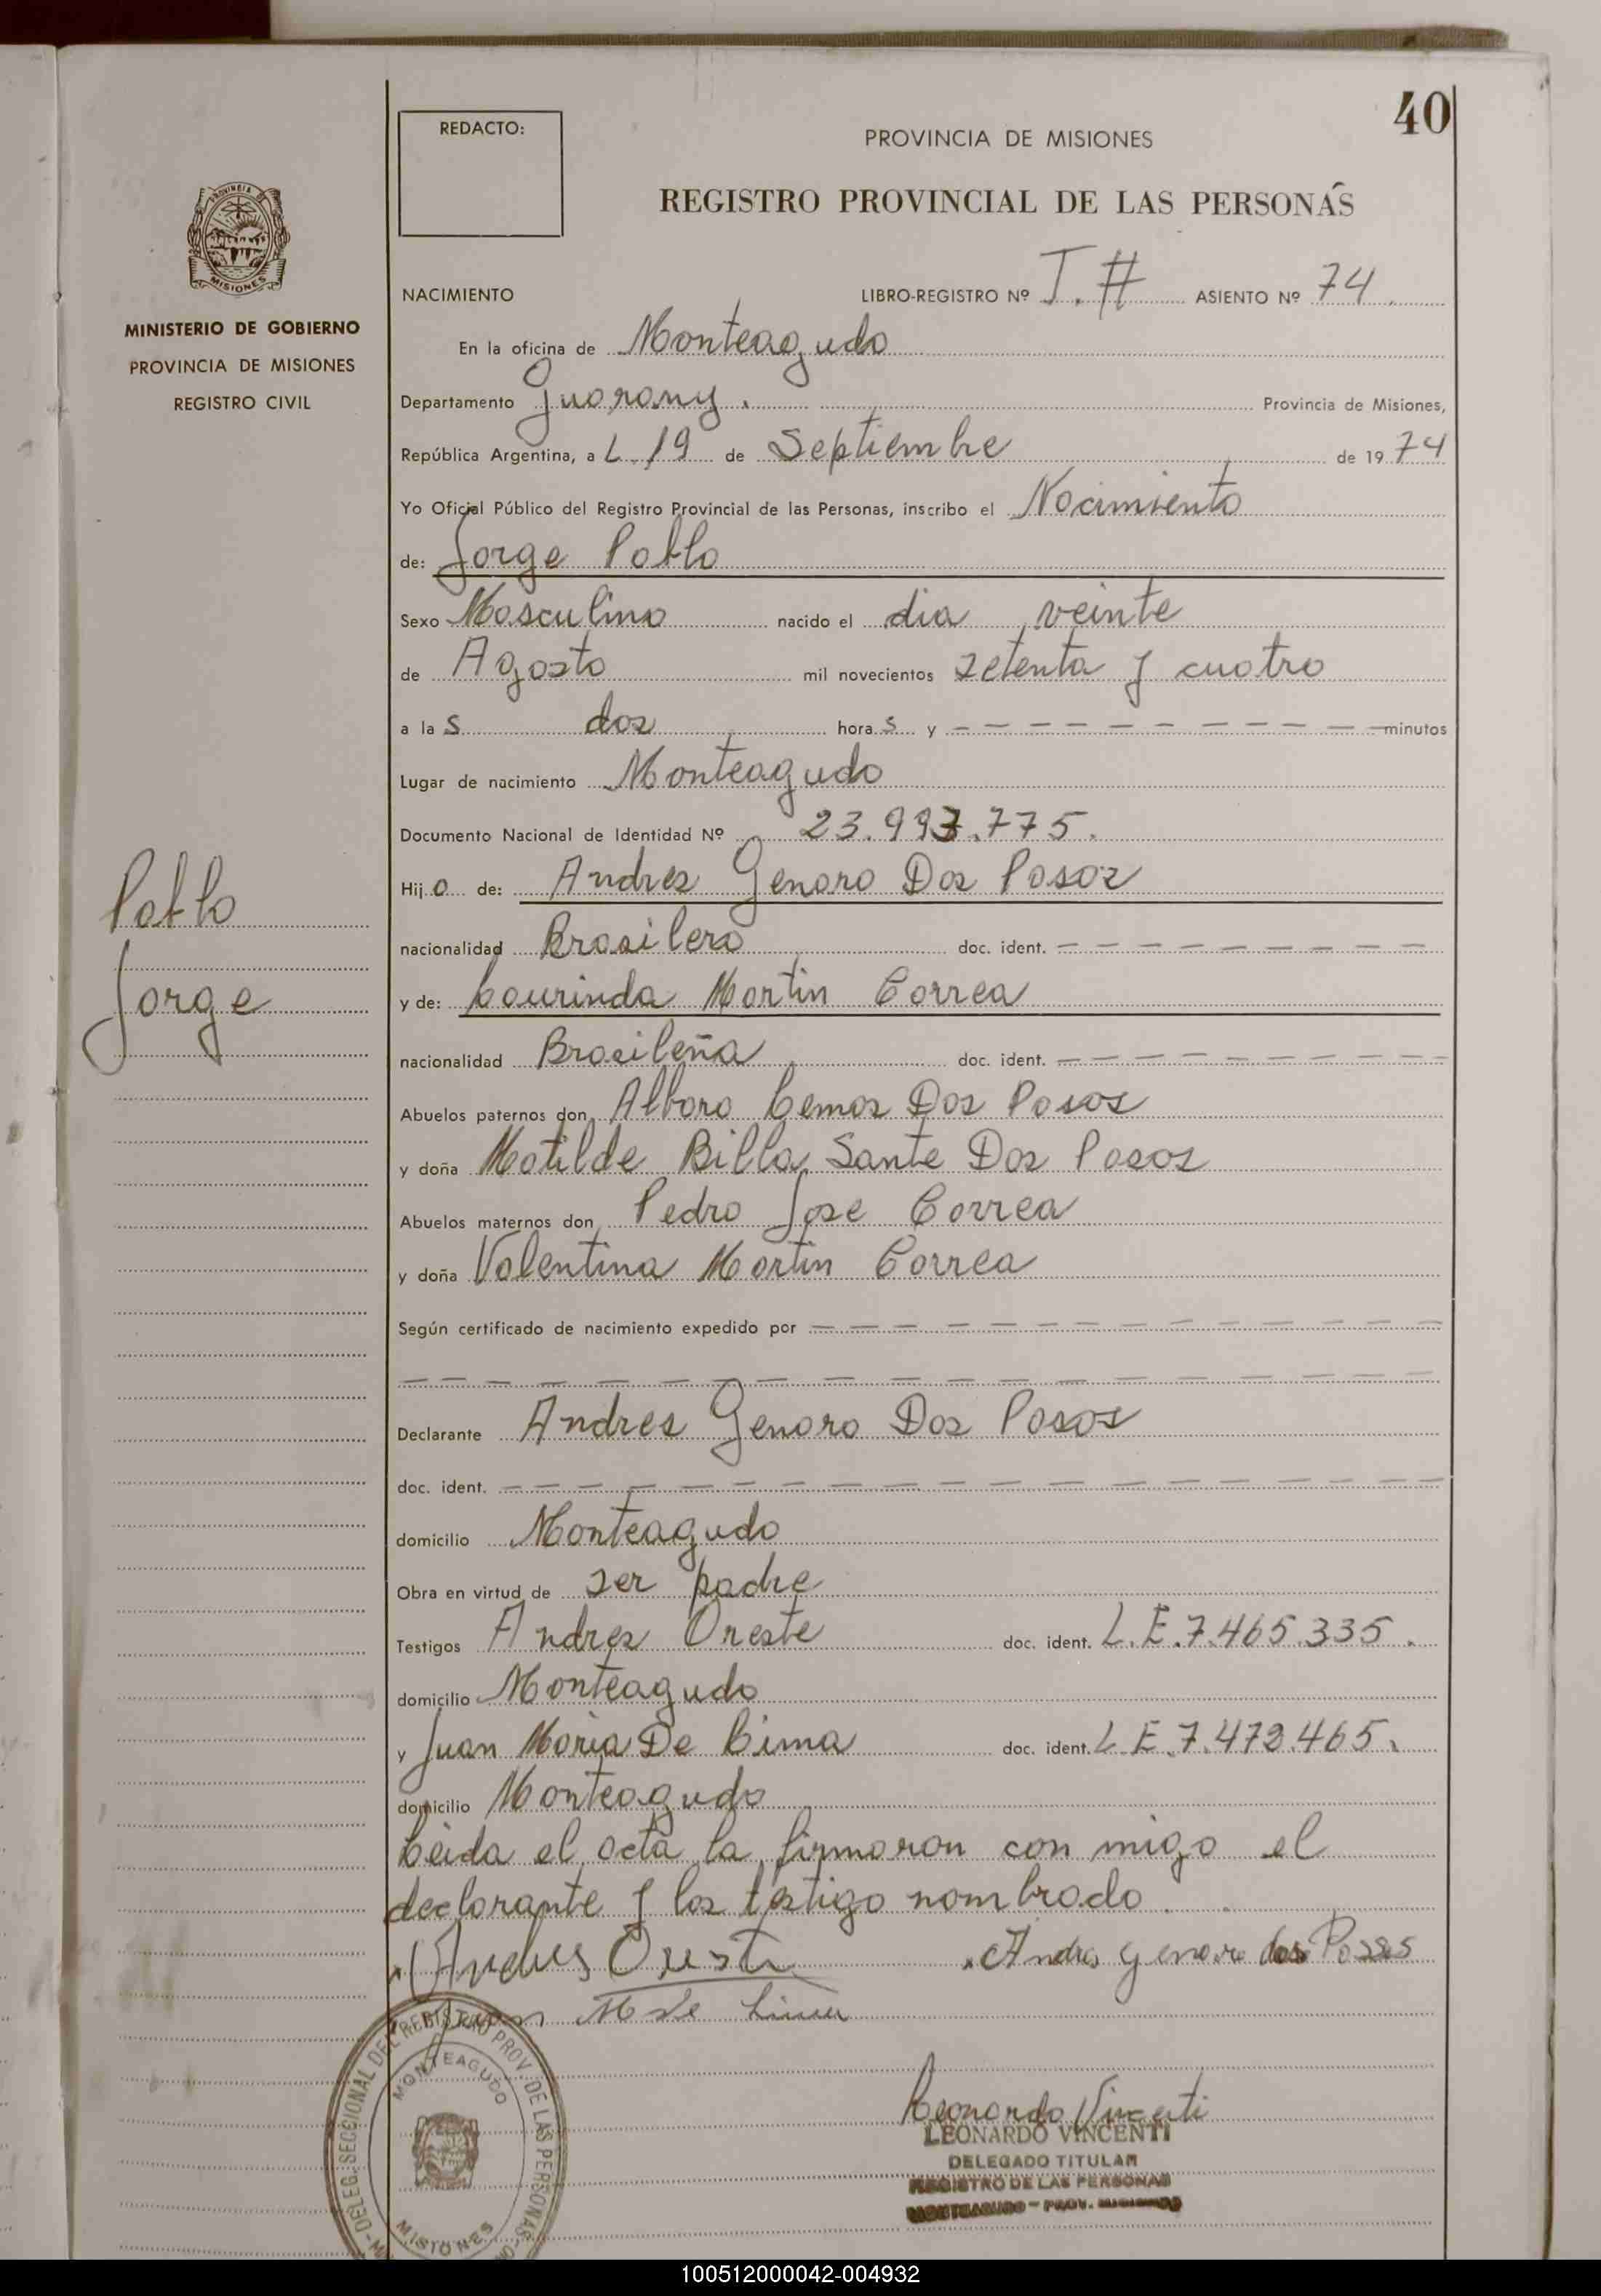 40
REDACTO:
PROVINCIA DE MISIONES
REGISTRO PROVINCIAL DE LAS PERSONAS
MISIONES
MINISTERIO DE GOBIERNO
PROVINCIA DE MISIONES
REGISTRO CIVIL
NACIMIENTO LIBRO-REGISTRO Nº T. # ASIENTO Nº 74.
En la oficina de Monteagudo
Departamento Guarany. Provincia de Misiones,
República Argentina, a L. 19 de Septiembre de 19 74
Yo Oficial Público del Registro Provincial de las Personas, inscribo el Nacimiento
de: Jorge Pablo
Sexo Masculino nacido el dia veinte
de Agosto mil novecientos setenta y cuatro
a la s dos hora s y — — — — — — — — — minutos
Lugar de nacimiento Monteagudo
Documento Nacional de Identidad Nº 23.993.775.
Hij o de: Andres Genaro Dos Pasos
nacionalidad Brasilero doc. ident. — — — — — — — — —
y de: Lourinda Martin Correa
nacionalidad Brasileña doc. ident. — — — — — — — — —
Abuelos paternos don Alboro Lemos Dos Pasos
y doña Matilde Billa Sante Dos Pasos
Abuelos maternos don Pedro Jose Correa
y doña Valentina Martin Correa
Según certificado de nacimiento expedido por — — — — — — — — —
Declarante Andres Genaro Dos Pasos
doc. ident. — — — — — — — — —
domicilio Monteagudo
Obra en virtud de ser padre
Testigos Andres Oreste doc. ident. L.E.7.465.335.
domicilio Monteagudo
y Juan Maria De Lima doc. ident. L.E.7.472.465.
domicilio Monteagudo
Leida el acta la firmaron con migo el
declarante y los testigo nombrado.
Pablo
Jorge
Andres Oresti
Andres Genaro dos Passos
Juan M de Lima
Leonardo Vincenti
LEONARDO VINCENTI
DELEGADO TITULAR
REGISTRO DE LAS PERSONAS
MONTEAGUDO - PROV. MISIONES
DELEG. SECCIONAL DEL REGISTRO PROV. DE LAS PERSONAS
MONTEAGUDO
MISIONES
100512000042-004932